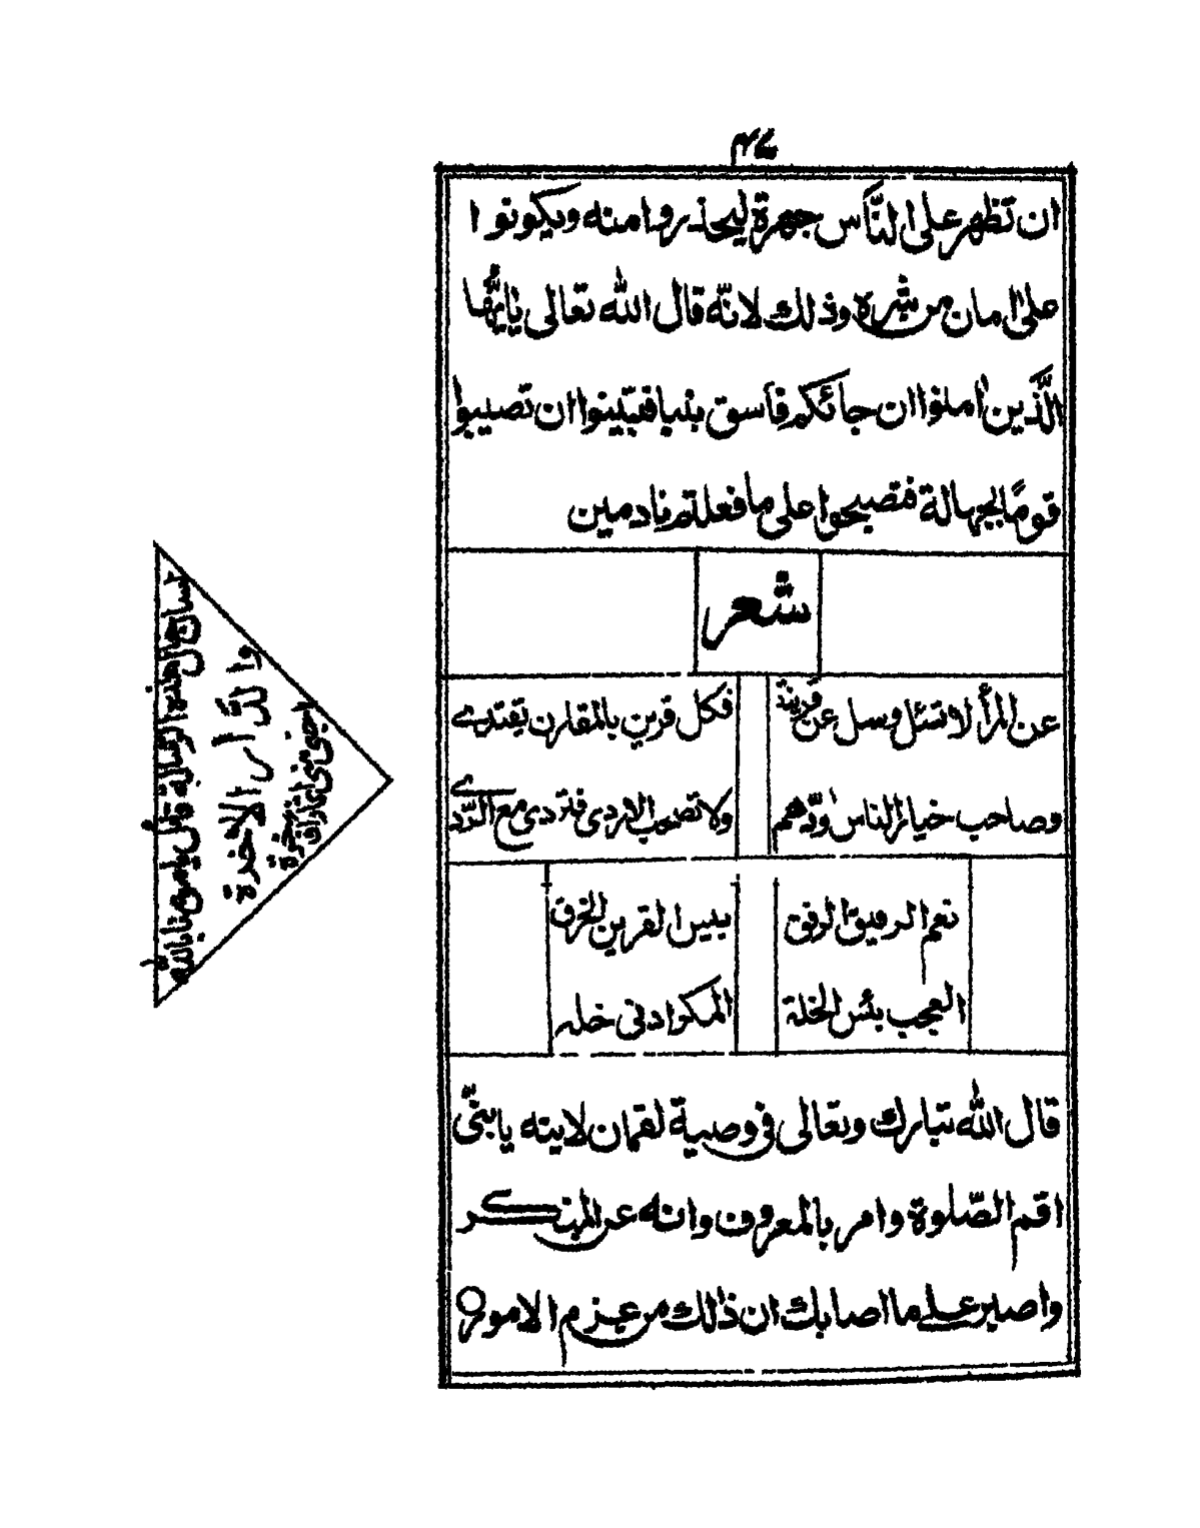 ۴۷
ان تظهر على النّاس جهرة ليحذروا منه ويكونوا
على امان من شره وذلك لانّه قال الله تعالى يايّها
الّذين امنوا ان جائكم فاسق بنبا فتبيّنوا ان تصيبوا
قومًا بجهالة فتصبحوا على ما فعلتم نادمين
شعر
عن المرأ لا تسئل وسل عن قرينه فكل قرين بالمقارن يقتدے
وصاحب خيار الناس ودّهم ولا تصحب الاردى فتردى مع الرّدے
نعم الرفيق الرفق بيس القرين الخرق
العجب بئس الخلة المكر ادنى خله
قال الله تبارك وتعالى فى وصية لقمان لابنه يابنىّ
اقم الصّلوة وامر بالمعروف وانه عن المنكر
واصبر على ما اصابك ان ذلك من عزم الامور
هذه الرسالة قائل يا مومنا بالله
والدّار الاخرة